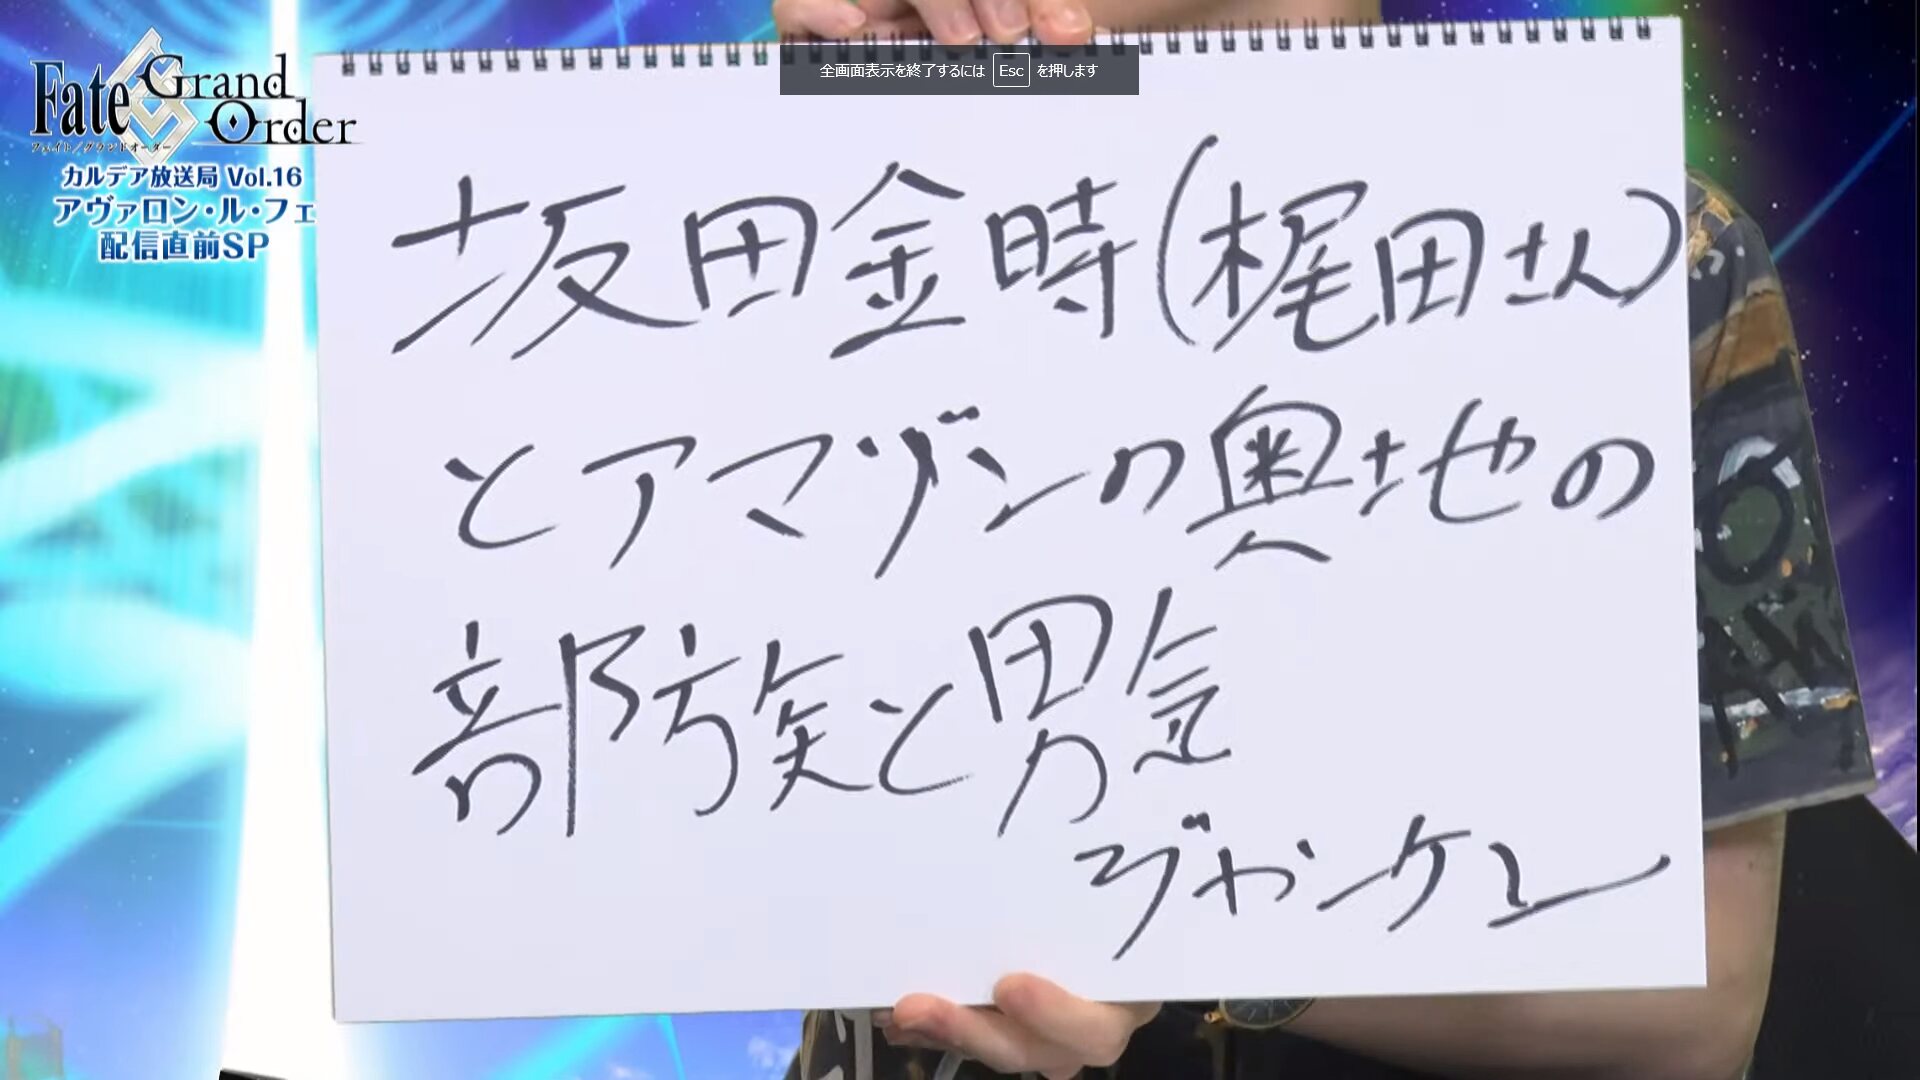 Fate Grand Order
フェイト/グランドオーダー
カルデア放送局 Vol.16
アヴァロン・ル・フェ
配信直前SP
全画面表示を終了するには Esc を押します
坂田金時(梶田さん)
とアマゾンの奥地の
部族と男気
ジャンケン